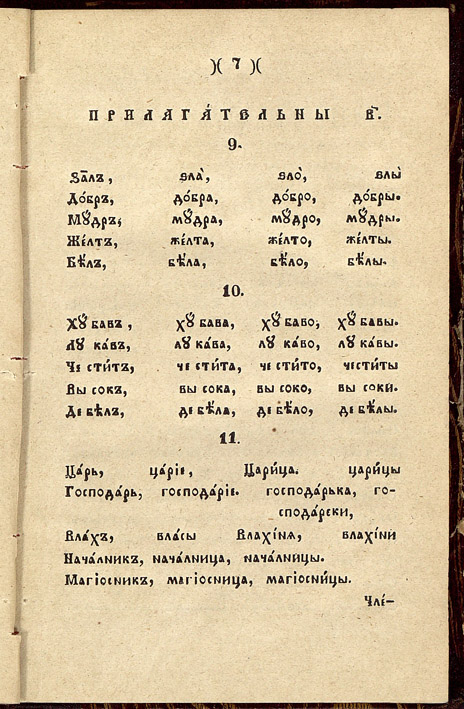 )( 7 )(
ПРИЛАГА́ТЕЛЬНЫ В҃.
9.
Ѕа́лъ, ѕла̀, ѕло̀, ѕлы̀
До́бръ, до́бра, до́бро, до́бры.
Мꙋ́дръ; мꙋ́дра, мꙋ́дро, мꙋ́дры.
Же́лтъ, же́лта, же́лто, же́лты.
Бѣ́лъ, бѣ́ла, бѣ́ло, бѣ́лы.
10.
Хꙋ́ бавъ, хꙋ́ бава, хꙋ́ баво; хꙋ́ бавы.
Лꙋ ка́въ, лꙋ ка́ва, лꙋ ка́во, лꙋ ка́вы.
Че сти́тъ, че сти́та, че сти́то, чести́ты
Вы сокъ, вы сока, вы соко, вы соки.
Де бѣ́лъ, де бѣ́ла, де бѣ́ло, де бѣ́лы.
11.
Ца́рь, ца́ріе, Цари́ца. цари́цы
Господа́рь, господа́ріе. господа́рька, го-
спода́рски,
Вла́хъ, вла́сы Влахі́нѧ, влахі́ни
Нача́лникъ, нача́лница, нача́лницы.
Магіо́сникъ, магіо́сница, магіосни́цы.
Чле́-